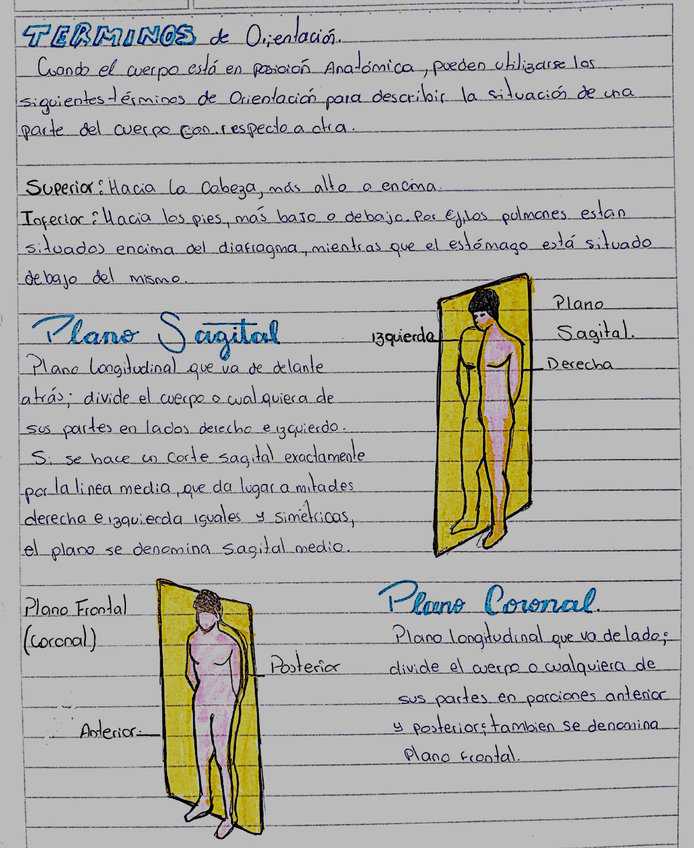 TERMINOS de Orientación.
Cuando el cuerpo está en posición Anatómica, pueden utilizarse los
siguientes términos de Orientación para describir la situación de una
parte del cuerpo con respecto a otra.
Superior: Hacia la Cabeza, más alto o encima.
Inferior: Hacia los pies, más bajo o debajo. Por Ej, los pulmones estan
situados encima del diafragma, mientras que el estómago está situado
debajo del mismo.
Plano Sagital
Plano Longitudinal que va de delante
atrás; divide el cuerpo o cualquiera de
sus partes en lados derecho e izquierdo.
Si se hace un corte sagital exactamente
por la linea media, que da lugar a mitades
derecha e izquierda iguales y simétricas,
el plano se denomina Sagital medio.
Izquierda
Plano
Sagital.
Derecha
Plano Frontal
(coronal)
Posterior
Anterior
Plano Coronal.
Plano longitudinal que va de lado;
divide el cuerpo o cualquiera de
sus partes en porciones anterior
y posterior; tambien se denomina
Plano Frontal.